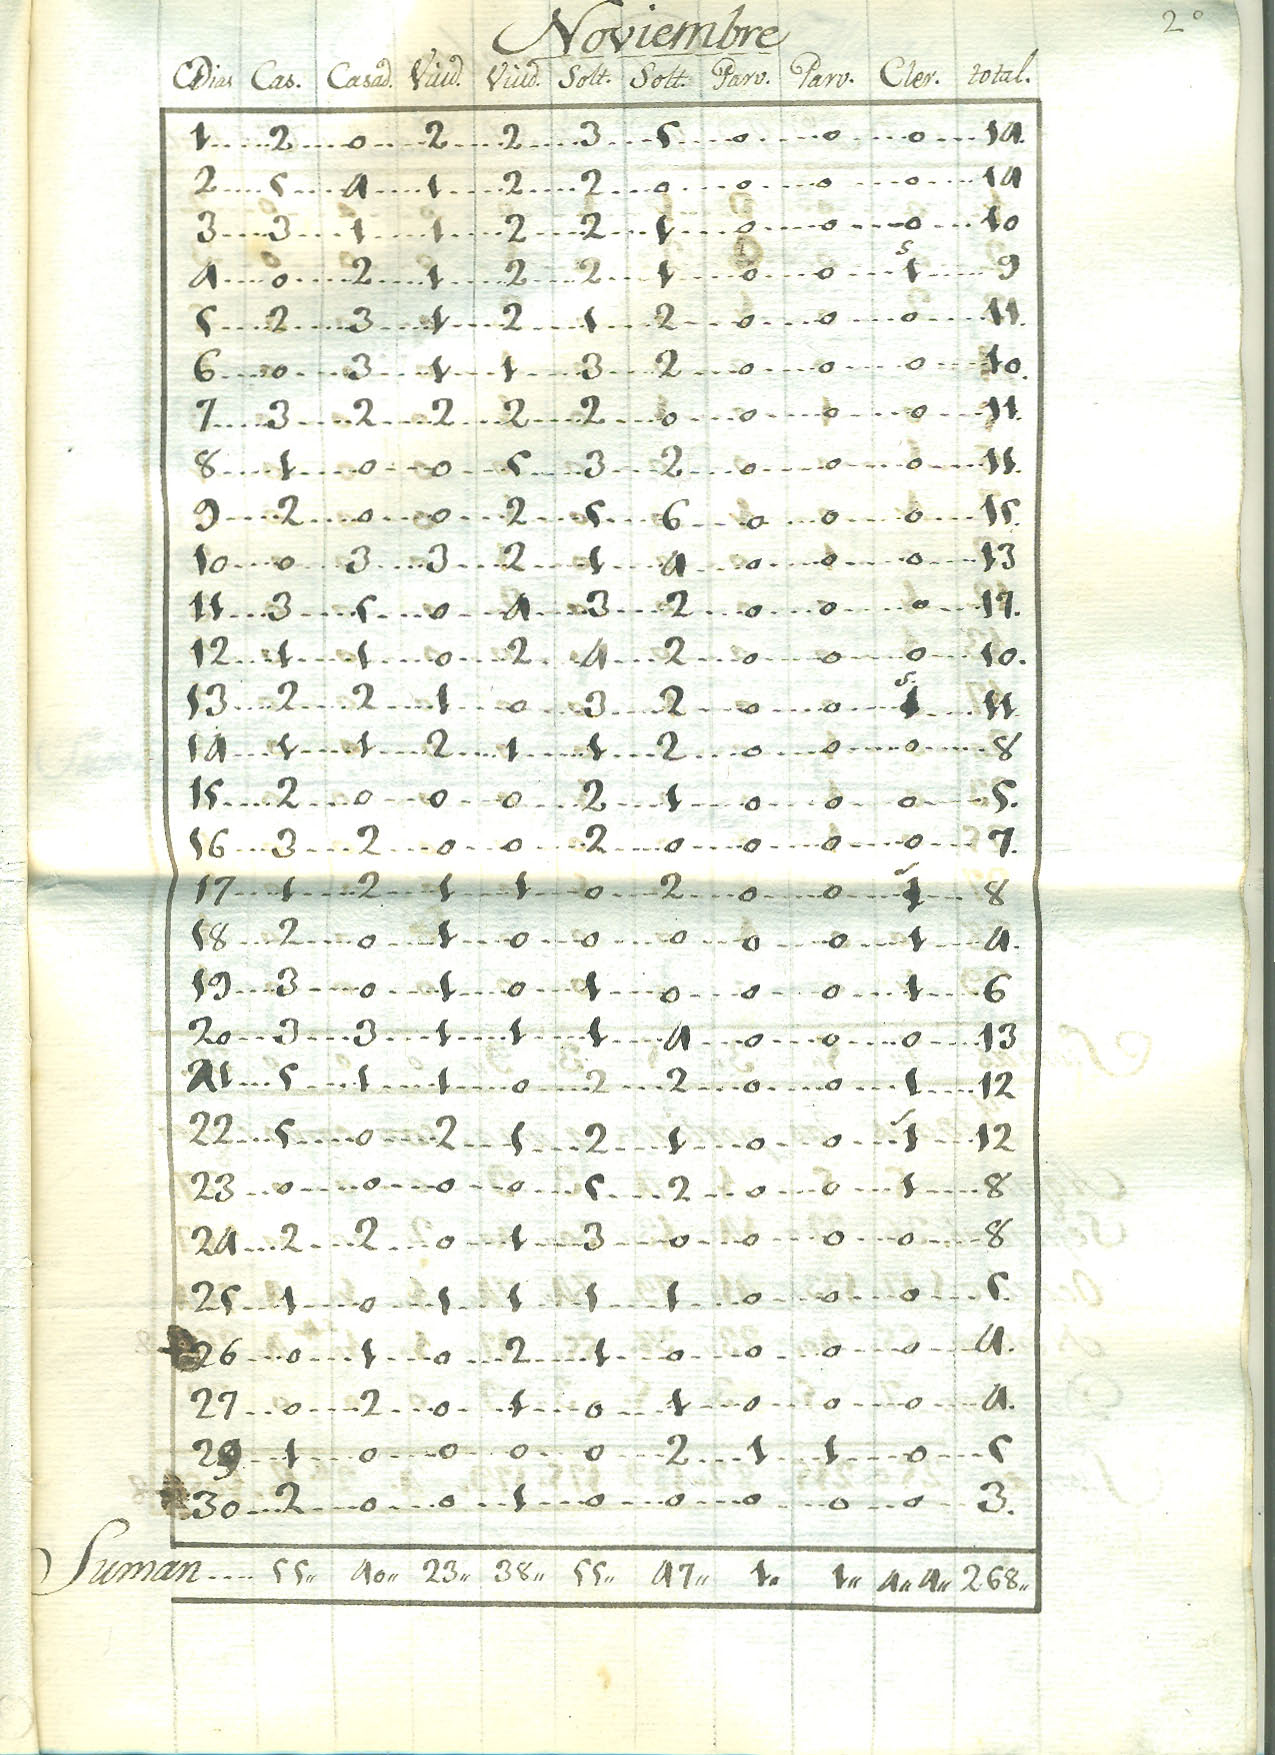 2º
Noviembre
Dias Cas. Casad. Viud. Viud. Solt. Solt. Parv. Parv. Cler. total.
1 2 0 2 2 3 5 0 0 0 14.
2 5 4 1 2 2 0 0 0 0 14
3 3 1 1 2 2 1 0 0 0 10
s
4 0 2 1 2 2 1 0 0 1 9
5 2 3 1 2 1 2 0 0 0 11.
6 0 3 1 1 3 2 0 0 0 10.
7 3 2 2 2 2 0 0 0 0 11.
8 1 0 0 5 3 2 0 0 0 11.
9 2 0 0 2 5 6 0 0 0 15.
10 0 3 3 2 1 4 0 0 0 13
11 3 5 0 4 3 2 0 0 0 17.
12 1 1 0 2 4 2 0 0 0 10.
s.
13 2 2 1 0 3 2 0 0 1 11
14 1 1 2 1 1 2 0 0 0 8
15 2 0 0 0 2 1 0 0 0 5.
16 3 2 0 0 2 0 0 0 0 7.
17 1 2 1 1 0 2 0 0 1 8
18 2 0 1 0 0 0 0 0 1 4.
19 3 0 1 0 1 0 0 0 1 6
20 3 3 1 1 1 4 0 0 0 13
21 5 1 1 0 2 2 0 0 1 12
22 5 0 2 1 2 1 0 0 1 12
23 0 0 0 0 5 2 0 0 1 8
24 2 2 0 1 3 0 0 0 0 8
25 1 0 1 1 1 1 0 0 0 5
26 0 1 0 2 1 0 0 0 0 4.
27 0 2 0 1 0 1 0 0 0 4.
29 1 0 0 0 0 2 1 1 0 5
30 2 0 0 1 0 0 0 0 0 3.
Suman.... 55,, 40,, 23,, 38,, 55,, 47,, 1,, 1,, 4,, 4,, 268,,